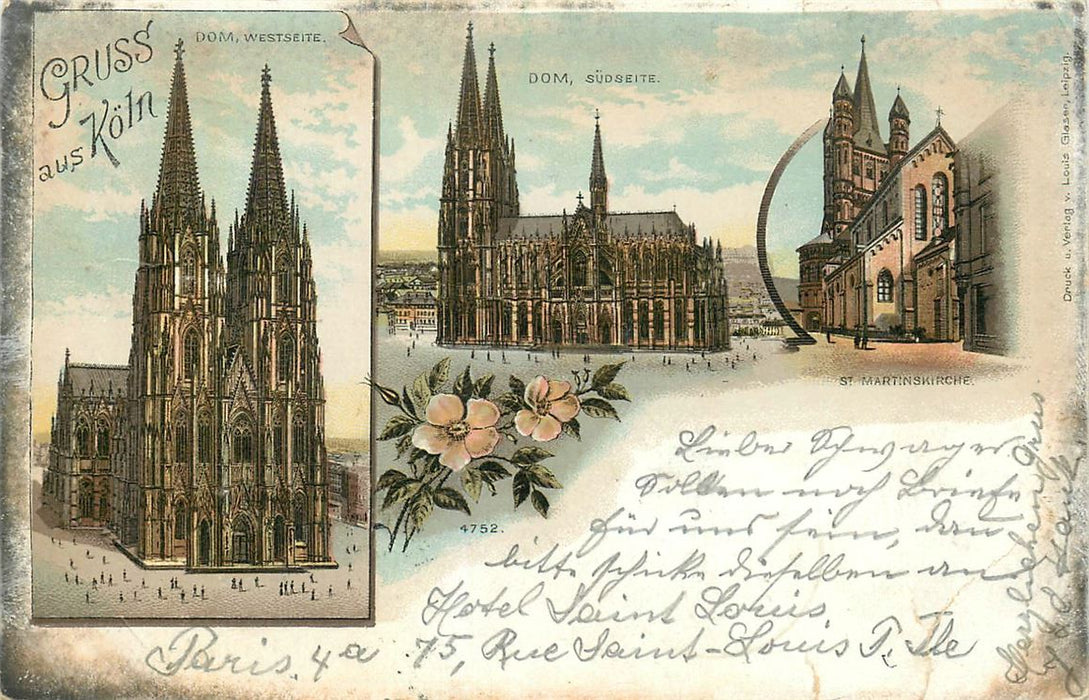 GRUSS
aus Köln
DOM, WESTSEITE.
DOM, SÜDSEITE.
ST MARTINSKIRCHE.
Druck u. Verlag v. Louis Glaser, Leipzig.
4752.
Lieber Schwager
Sollten noch Briefe
für uns sein, dan
bitte schicke dieselben an
Hotel Saint Louis
75, Rue Saint-Louis
Paris 4a
Herzlichen Grus